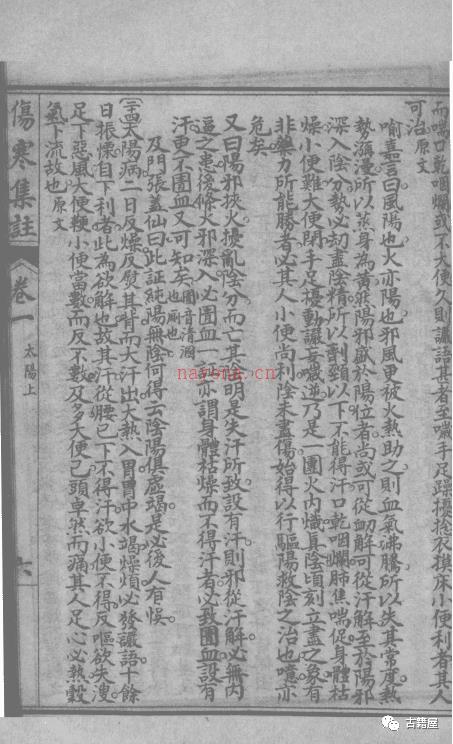 而喘口乾咽爛或不大便久則讝語甚者至噦手足躁擾捻衣摸床小便利者其人
可治原文
喻嘉言曰風陽也火亦陽也邪風更被火熱助之則血氣沸騰所以失其常度熱
勢瀰漫所以蒸身為黃然陽邪盛於陽位者尚或可從衄解可從汗解至於陽邪
深入陰分勢必劫盡陰精所以劑頸以下不能得汗口乾咽爛肺焦喘促身體枯
燥小便難大便閉手足擾動讝妄噦逆乃是一團火內熾真陰頃刻立盡之象有
非藥力所能勝者必其人小便尚利陰未盡傷始得以行驅陽救陰之治也噫亦
危矣
又曰陽邪挾火擾亂陰分而亡其血明是失汗所致設有汗則邪從汗解必無內
逼之患後條火邪深入必圊血一證亦謂身體枯燥而不得汗者必致圊血設有
汗更不圊血又可知矣圊音清溷也廁也
及門張蓋仙曰此証純陽無陰何得云陰陽俱虛竭是必後人有悞
(二十四)太陽病二日反燥反熨其背而大汗出大熱入胃胃中水竭燥煩必發讝語十餘
日振慄自下利者此為欲解也故其汗從腰已下不得汗欲小便不得反嘔欲失溲
足下惡風大便鞕小便當數而反不數及多大便已頭卓然而痛其人足心必熱穀
氣下流故也原文
傷寒集註
卷一
太陽上
六
nayona.cn
古籍屋